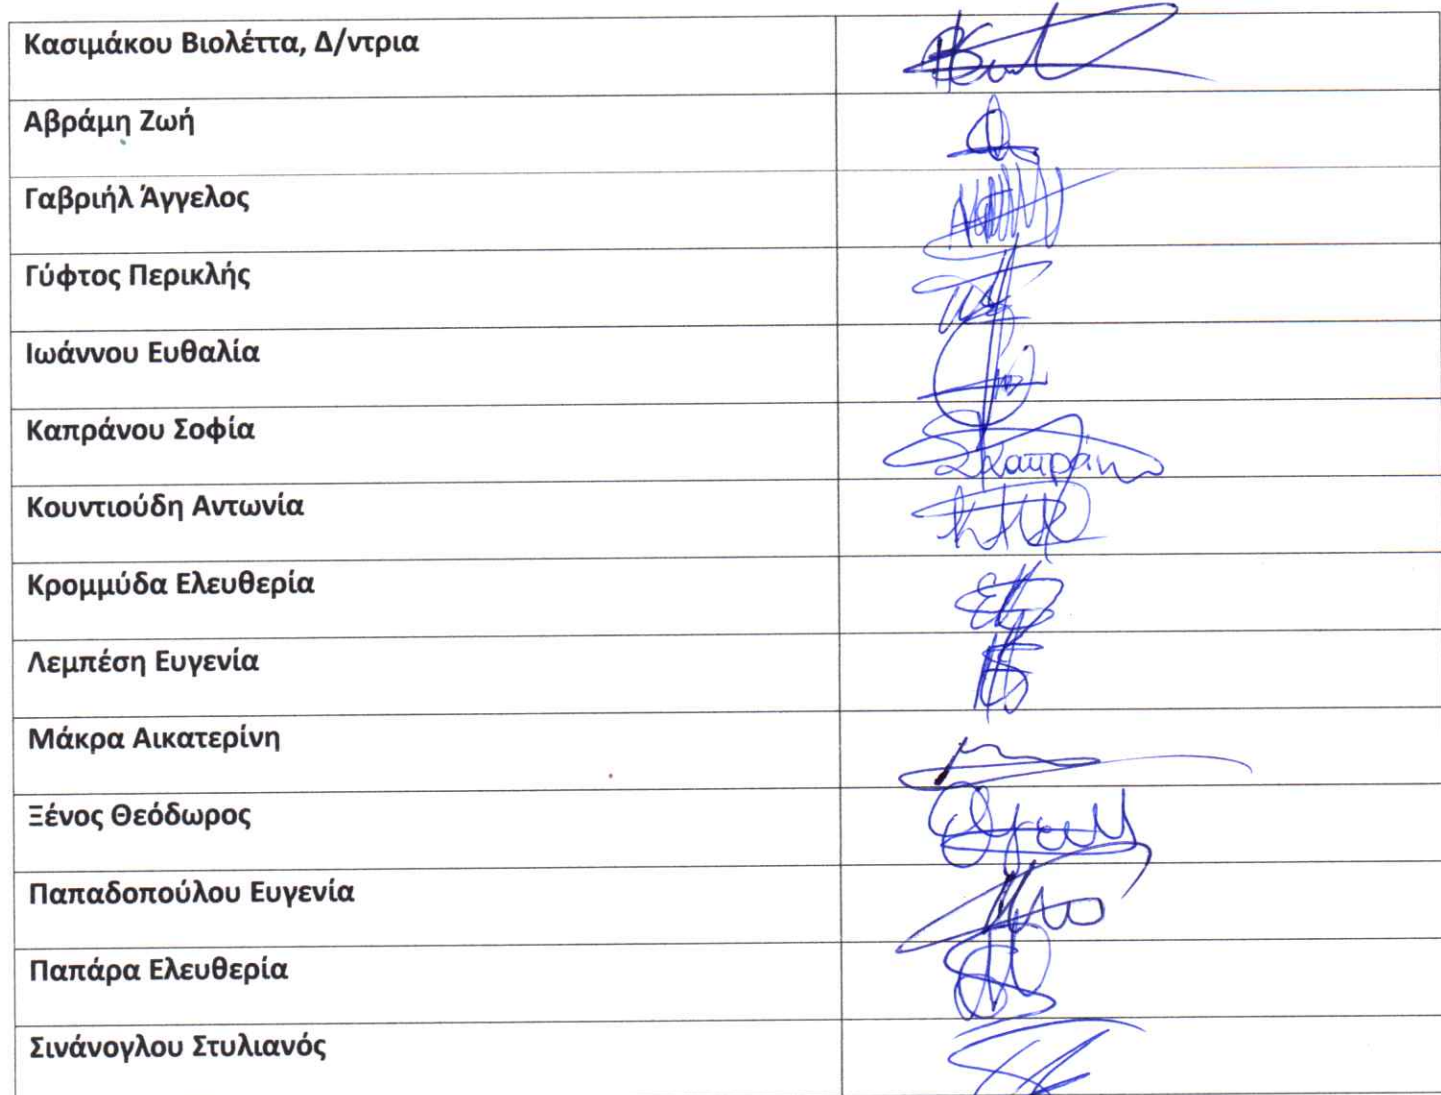 Κασιμάκου Βιολέττα, Δ/ντρια
Αβράμη Ζωή
Γαβριήλ Άγγελος
Γύφτος Περικλής
Ιωάννου Ευθαλία
Καπράνου Σοφία
Κουντιούδη Αντωνία
Κρομμύδα Ελευθερία
Λεμπέση Ευγενία
Μάκρα Αικατερίνη
Ξένος Θεόδωρος
Παπαδοπούλου Ευγενία
Παπάρα Ελευθερία
Σινάνογλου Στυλιανός